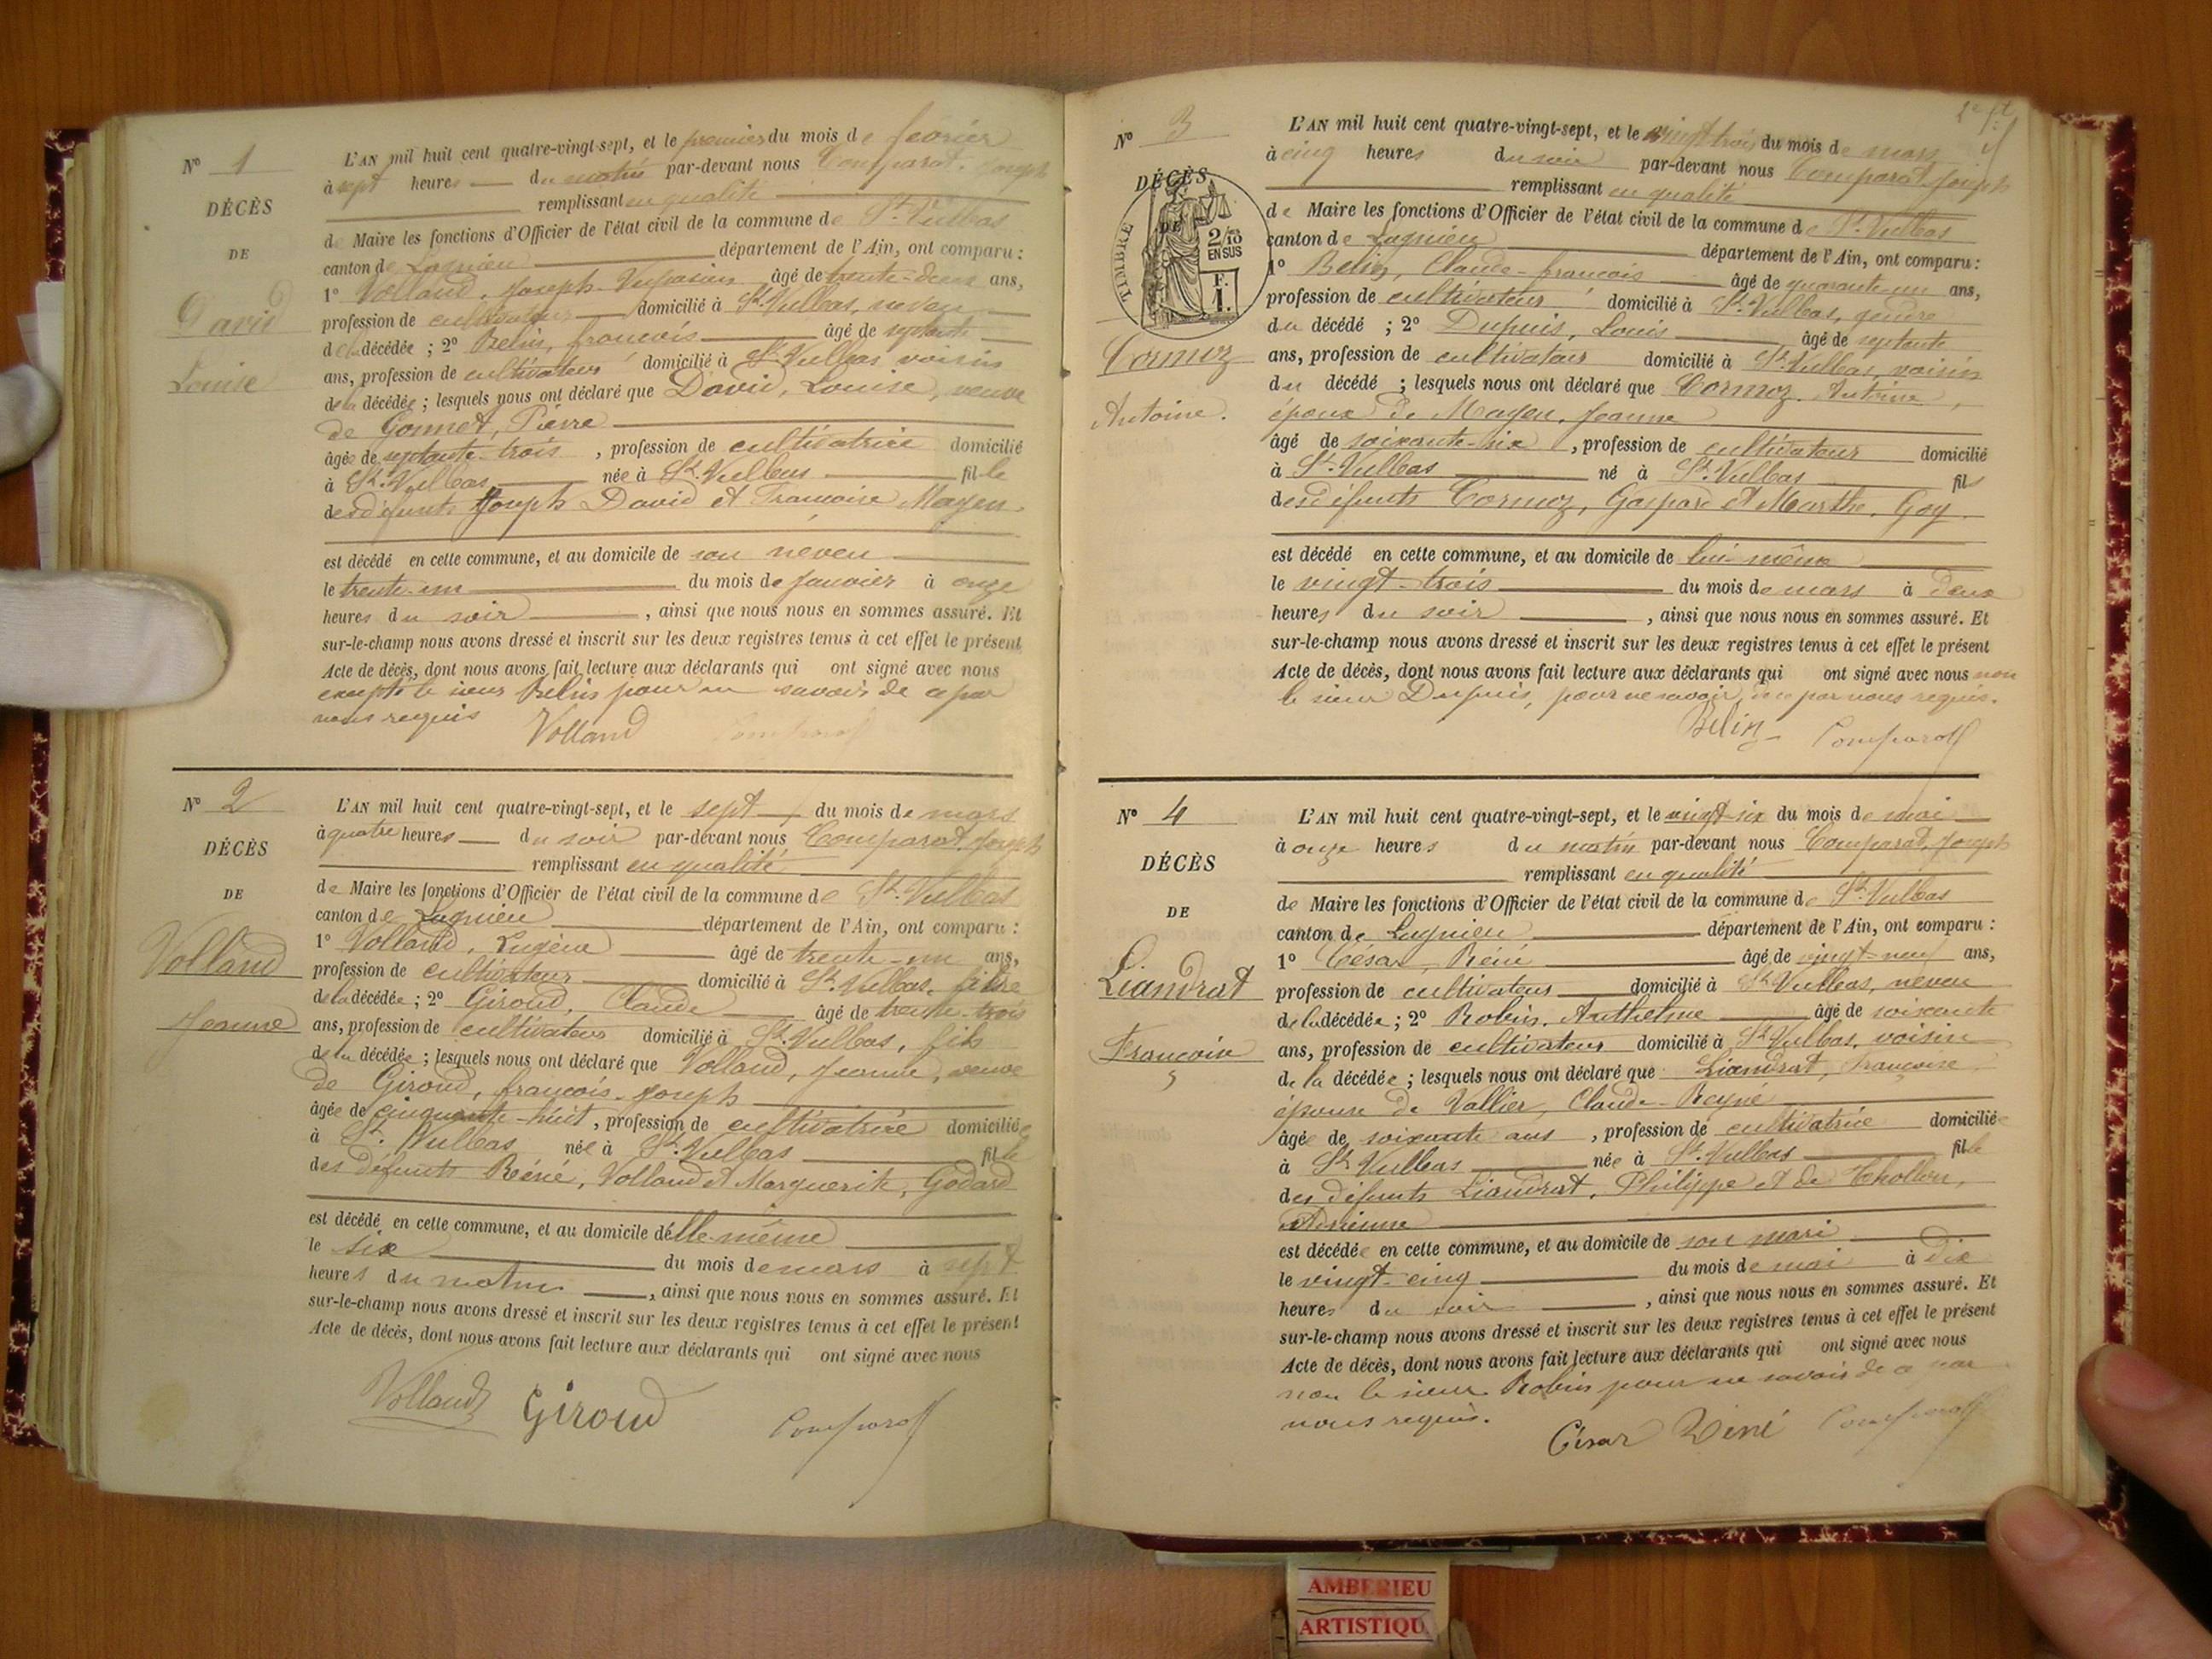 N° 1
DÉCÈS
DE
David
Louise
L'AN mil huit cent quatre-vingt-sept, et le premier du mois de février
à sept heures du matin par-devant nous Comparat, Joseph
remplissant en qualité
de Maire les fonctions d'Officier de l'état civil de la commune de St. Vulbas
canton de Lagnieu département de l'Ain, ont comparu :
1° Volland, Joseph-Vespasien âgé de trente-deux ans,
profession de cultivateur domicilié à St. Vulbas, neveu
de la décédée ; 2° Belin, françois âgé de septante
ans, profession de cultivateur domicilié à St. Vulbas voisin
de la décédée ; lesquels nous ont déclaré que David, Louise, veuve
de Gonnet, Pierre
âgée de septante-trois , profession de cultivatrice domicilié
à St. Vulbas née à St. Vulbas fille
des défunts Joseph David et Françoise Mayen
est décédé en cette commune, et au domicile de son neveu
le trente-un du mois de janvier à onze
heures du soir , ainsi que nous nous en sommes assuré. Et
sur-le-champ nous avons dressé et inscrit sur les deux registres tenus à cet effet le présent
Acte de décès, dont nous avons fait lecture aux déclarants qui ont signé avec nous
excepté le sieur Belin pour ne savoir de ce par
nous requis
Volland Comparat
N° 2
DÉCÈS
DE
Volland
Jeanne
L'AN mil huit cent quatre-vingt-sept, et le sept du mois de mars
à quatre heures du soir par-devant nous Comparat, Joseph
remplissant en qualité
de Maire les fonctions d'Officier de l'état civil de la commune de St. Vulbas
canton de Lagnieu département de l'Ain, ont comparu :
1° Volland, Eugène âgé de trente-un ans,
profession de cultivateur domicilié à St. Vulbas,
de la décédée ; 2° Giroud, Claude âgé de trente-trois
ans, profession de cultivateur domicilié à St. Vulbas, fils
de la décédée ; lesquels nous ont déclaré que Volland, Jeanne, veuve
de Giroud, françois-Joseph
âgée de cinquante-huit , profession de cultivatrice domiciliée
à St. Vulbas née à St. Vulbas fille
des défunts Réné, Volland et Marguerite, Godard
est décédé en cette commune, et au domicile d'elle-même
le six du mois de mars à sept
heures du matin , ainsi que nous nous en sommes assuré. Et
sur-le-champ nous avons dressé et inscrit sur les deux registres tenus à cet effet le présent
Acte de décès, dont nous avons fait lecture aux déclarants qui ont signé avec nous
Volland Giroud Comparat
N° 3
DÉCÈS
DE
TIMBRE
2/10
EN SUS
F.
1.
Cormoz
Antoine.
L'AN mil huit cent quatre-vingt-sept, et le vingt-trois du mois de mars
à cinq heures du soir par-devant nous Comparat, Joseph
remplissant en qualité
de Maire les fonctions d'Officier de l'état civil de la commune de St. Vulbas
canton de Lagnieu département de l'Ain, ont comparu :
1° Belin, Claude-francois âgé de quarante-un ans,
profession de cultivateur domicilié à St. Vulbas, gendre
du décédé ; 2° Dupuis, Louis âgé de septante
ans, profession de cultivateur domicilié à St. Vulbas, voisin
du décédé ; lesquels nous ont déclaré que Cormoz, Antoine,
époux de Mayen, Jeanne
âgé de soixante-six , profession de cultivateur domicilié
à St. Vulbas né à St. Vulbas fils
des défunts Cormoz, Gaspard et Marthe, Goy
est décédé en cette commune, et au domicile de lui-même
le vingt-trois du mois de mars à deux
heures du soir , ainsi que nous nous en sommes assuré. Et
sur-le-champ nous avons dressé et inscrit sur les deux registres tenus à cet effet le présent
Acte de décès, dont nous avons fait lecture aux déclarants qui ont signé avec nous non
le sieur Dupuis, pour ne savoir, de ce par nous requis.
Belin Comparat
N° 4
DÉCÈS
DE
Liandrat
Françoise
L'AN mil huit cent quatre-vingt-sept, et le vingt-six du mois de mai
à onze heures du matin par-devant nous Comparat, Joseph
remplissant en qualité
de Maire les fonctions d'Officier de l'état civil de la commune de St. Vulbas
canton de Lagnieu département de l'Ain, ont comparu :
1° César, Réné âgé de vingt-neuf ans,
profession de cultivateur domicilié à St. Vulbas, neveu
de la décédée ; 2° Robin, Anthelme âgé de soixante
ans, profession de cultivateur domicilié à St. Vulbas, voisin
de la décédée ; lesquels nous ont déclaré que Liandrat, Françoise
épouse de Vallier, Claude-Reyné
âgée de soixante ans , profession de cultivatrice domiciliée
à St. Vulbas née à St. Vulbas fille
des défunts Liandrat, Philippe et de Thollon,
est décédée en cette commune, et au domicile de son mari
le vingt-cinq du mois de mai à dix
heures du soir , ainsi que nous nous en sommes assuré. Et
sur-le-champ nous avons dressé et inscrit sur les deux registres tenus à cet effet le présent
Acte de décès, dont nous avons fait lecture aux déclarants qui ont signé avec nous
non le sieur Robin pour ne savoir de ce par
nous requis.
César Réné Comparat
AMBERIEU
ARTISTIQU